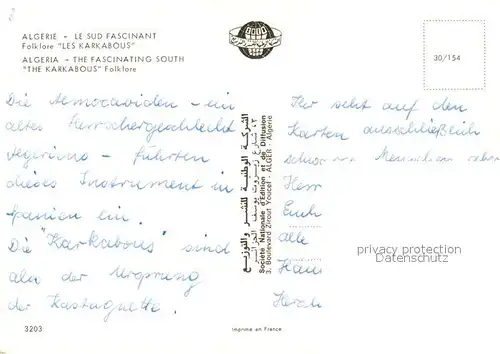 2
ALGERIE - LE SUD FASCINANT
Folklore "LES KARKABOUS"
ALGERIA - THE FASCINATING SOUTH
"THE KARKABOUS" Folklore
30/154
Die Almoraviden - ein
altes Herrschergeschlecht
Algeriens - führten
dieses Instrument in
Spanien ein.
Die "Karkabous" sind
also der Ursprung
der Kastagnette.
الشركة الوطنية للنشر والتوزيع
٣، شارع زيروت يوسف الجزائر
Société Nationale d'Edition et de Diffusion
3, Boulevard Zirout Youcef - ALGER - Algérie
Ihr seht auf den
Karten ausschließlich
schon
Herr
Euch
alle
Herzli
privat copyright
ansichtskartenversand
3203
Imprimé en France